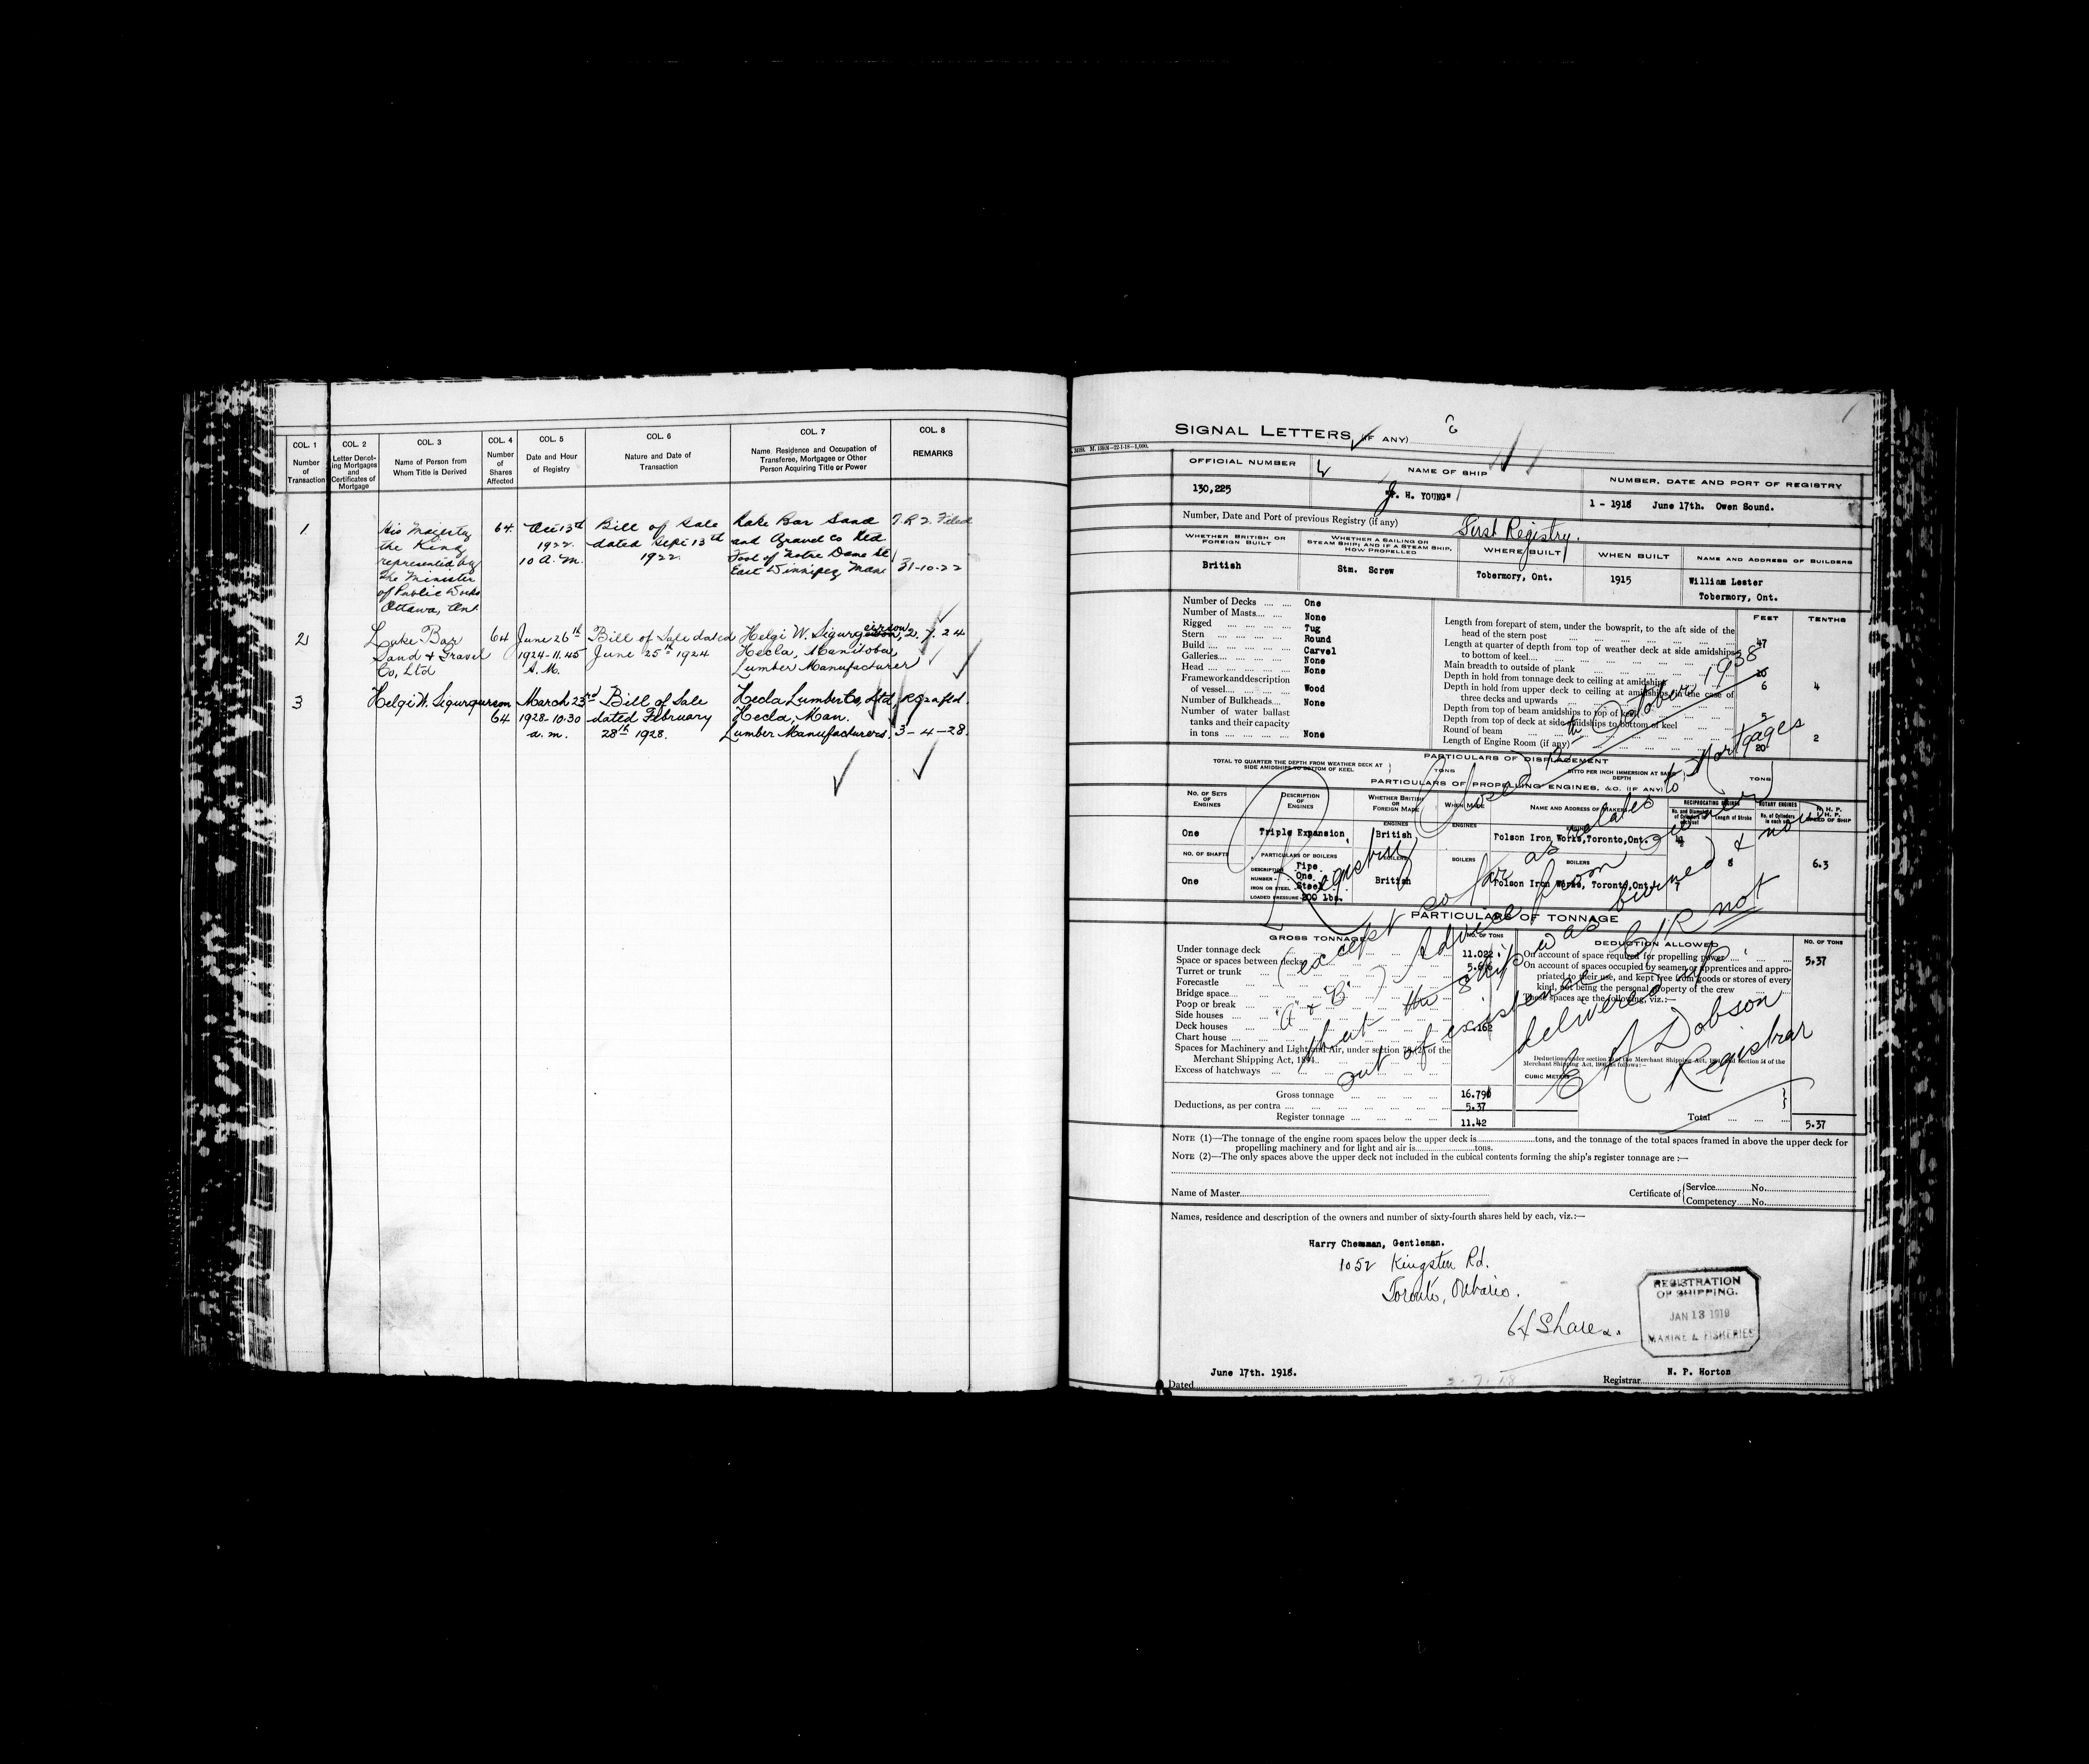 COL. 1 COL. 2 COL. 3 COL. 4 COL. 5 COL. 6 COL. 7 COL. 8
Number of Transaction
Letter Denoting Mortgages and Certificates of Mortgage
Name of Person from Whom Title is Derived
Number of Shares Affected
Date and Hour of Registry
Nature and Date of Transaction
Name, Residence and Occupation of Transferee, Mortgagee or Other Person Acquiring Title or Power
REMARKS
1 His Majesty 64 Oct 13th Bill of Sale Lake Bar Sand Filed
the King 1922 dated Sept 13th and Gravel Co Ltd
represented by 10 A.M. 1922 Foot of Notre Dame St
the Minister East Winnipeg Man 31-10-22
of Public Works
Ottawa, Ont
2 Lake Bar 64 June 26th Bill of Sale dated Helgi W. 2.7.24
Sand & Gravel 1924-11.45 June 25th 1924 Hecla, Manitoba
Co, Ltd A.M. Lumber Manufacturer
3 Helgi W. March 23rd Bill of Sale Hecla Lumber Co, Ltd
64 1928-10.30 dated February Hecla, Man.
a.m. 28th 1928. Lumber Manufacturers. 3-4-28.
SIGNAL LETTERS (IF ANY)
OFFICIAL NUMBER NAME OF SHIP NUMBER, DATE AND PORT OF REGISTRY
130,225 H. YOUNG" 1 - 1918 June 17th. Owen Sound.
Number, Date and Port of previous Registry (if any) First Registry.
WHETHER BRITISH OR FOREIGN BUILT
WHETHER A SAILING OR STEAM SHIP; AND IF A STEAM SHIP, HOW PROPELLED
WHERE BUILT WHEN BUILT NAME AND ADDRESS OF BUILDERS
British Stm. Screw Tobermory, Ont. 1915 William Lester
Tobermory, Ont.
Number of Decks One
Number of Masts None
Rigged Tug
Stern Round
Build Carvel
Galleries None
Head None
Framework and description
of vessel Wood
Number of Bulkheads None
Number of water ballast
tanks and their capacity
in tons None
FEET TENTHS
Length from forepart of stem, under the bowsprit, to the aft side of the
head of the stern post 47
Length at quarter of depth from top of weather deck at side amidships
to bottom of keel
Main breadth to outside of plank
Depth in hold from tonnage deck to ceiling at amidships 6 4
Depth in hold from upper deck to ceiling at amidships, in the case of
three decks and upwards
Depth from top of beam amidships to top of keel 5
Depth from top of deck at side amidships to bottom of keel
Round of beam 2
Length of Engine Room (if any) 20
PARTICULARS OF DISPLACEMENT
TOTAL TO QUARTER THE DEPTH FROM WEATHER DECK AT SIDE AMIDSHIPS TO BOTTOM OF KEEL TONS
DITTO PER INCH IMMERSION AT SAME DEPTH TONS
PARTICULARS OF PROPELLING ENGINES, &C. (IF ANY)
NO. OF SETS OF ENGINES
DESCRIPTION OF ENGINES
WHETHER BRITISH OR FOREIGN MADE
WHEN MADE
NAME AND ADDRESS OF MAKERS
RECIPROCATING ENGINES
ROTARY ENGINES
Length of Stroke
ENGINES ENGINES
One Triple Expansion British Polson Iron Works, Toronto, Ont.
NO. OF SHAFTS PARTICULARS OF BOILERS BOILERS BOILERS
DESCRIPTION Pipe 8 6.3
NUMBER One
One IRON OR STEEL Steel British Polson Iron Works, Toronto, Ont.
LOADED PRESSURE 200 lbs.
PARTICULARS OF TONNAGE
GROSS TONNAGE NO. OF TONS DEDUCTION ALLOWED NO. OF TONS
Under tonnage deck 11.022
Space or spaces between decks
Turret or trunk
Forecastle
Bridge space
Poop or break
Side houses
Deck houses .162
Chart house
Spaces for Machinery and Light and Air, under section 78 (2) of the
Merchant Shipping Act, 1894
Excess of hatchways
Gross tonnage
Deductions, as per contra 5.37
Register tonnage 11.42
On account of space required for propelling power 5.37
On account of spaces occupied by seamen or apprentices and appro-
priated to their use, and kept free from goods or stores of every
kind, not being the personal property of the crew
These spaces are the following, viz.:—
CUBIC METERS
Total 5.37
Registry Closed 12th October 1938
(except so far as relates to Mortgages
"A" & "B") Advice from owner
that the ship was burned & now
out of existence C/R not
delivered up.
E A Dobson
Registrar
NOTE (1)—The tonnage of the engine room spaces below the upper deck is tons, and the tonnage of the total spaces framed in above the upper deck for
propelling machinery and for light and air is tons.
NOTE (2)—The only spaces above the upper deck not included in the cubical contents forming the ship's register tonnage are :—
Name of Master Certificate of Service No.
Competency No.
Names, residence and description of the owners and number of sixty-fourth shares held by each, viz.:—
Harry Gentleman.
1052 Kingston Rd.
Toronto, Ontario.
64 Shares.
REGISTRATION
OF SHIPPING.
JAN 13 1919
MARINE & FISHERIES
Dated June 17th. 1918. Registrar N. P. Horton